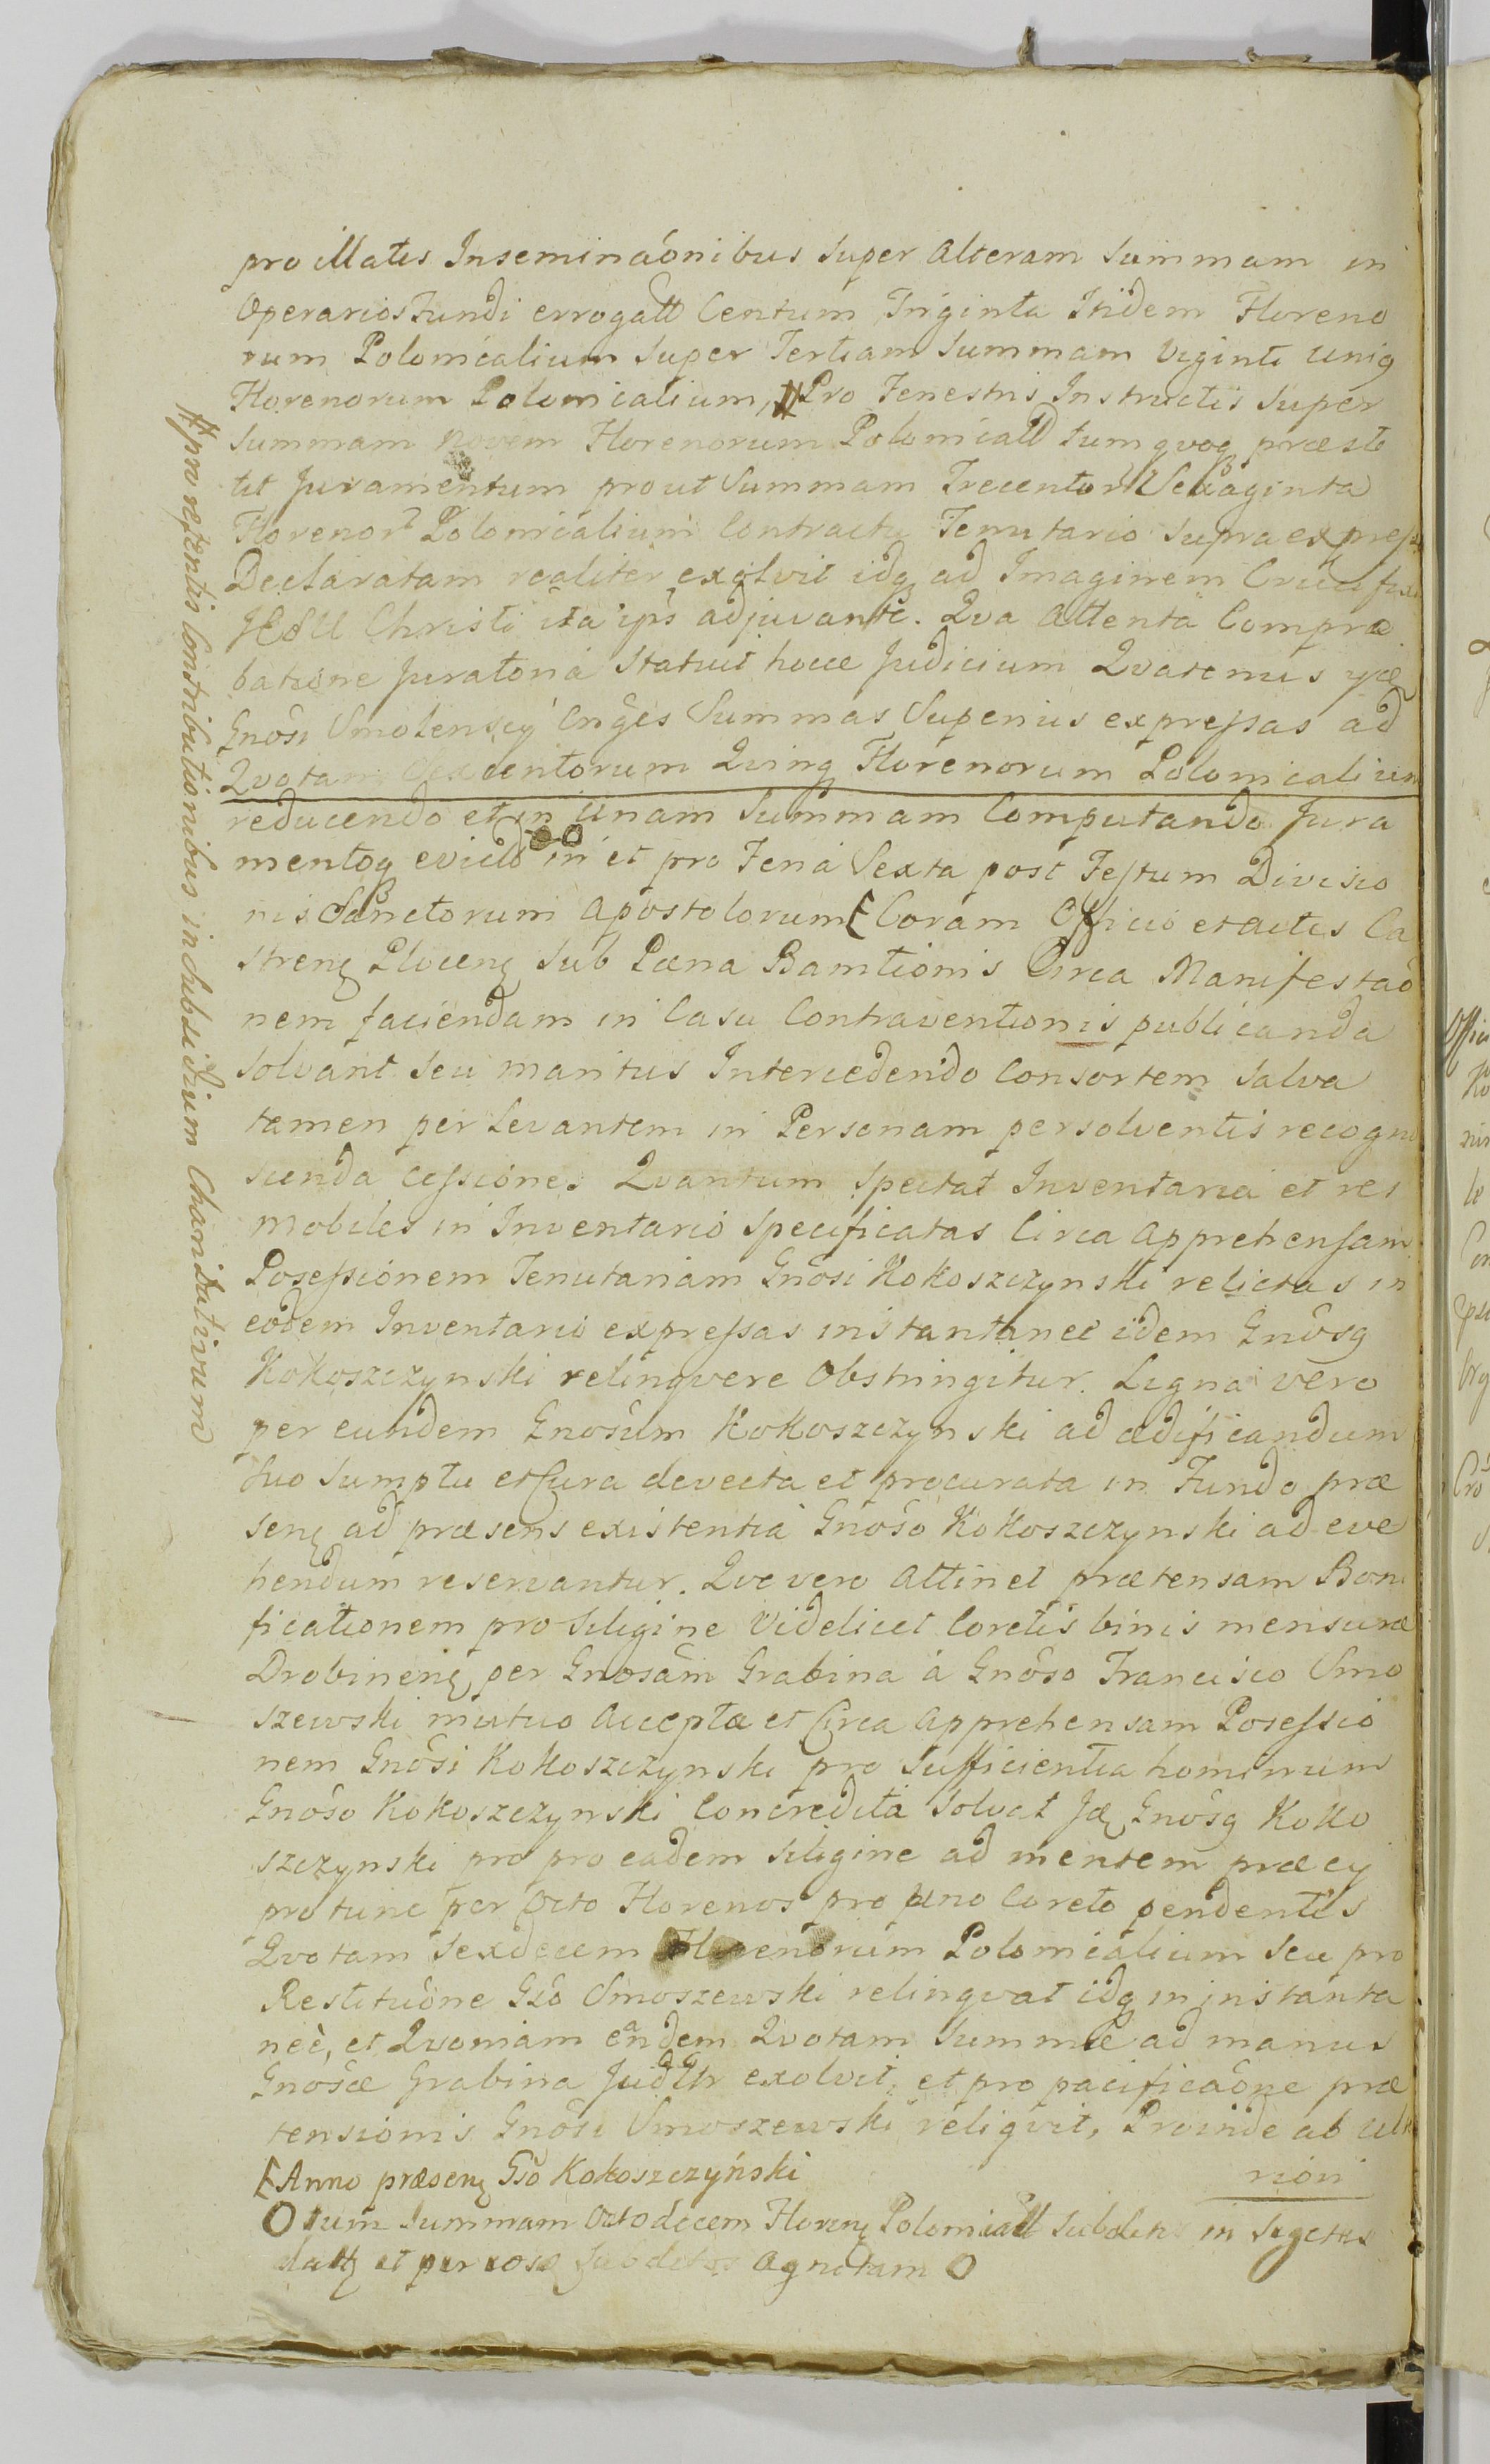 pro illatis Inseminaónibus super alteram Summam in
Operarios Fundi errogatt Centum Triginta Itidem Floreno
rum Polonicalium super Tertiam Summam Viginti Uniq
Florenorum Polonicalium, # Pro Fenestris Instructis super
Summam Novem Florenorum Polonicall tum qvoq præsti
tit Juramentum prout Summam Trecentor Sexaginta
Florenor Polonicalium Contractu Tenutario supra express
Declaratam realiter exolvit idq ad Imaginem Crucifixi
JESU Christi ita ips adjuvante. Qva attenta Compro
batione Juratoria Statuit hocce Judicium Qvatenus
Gnosi Smolenscy Cnges Summas Superius expressas ad
Qvotam centorum Qvinq Florenorum Polonicalium
reducendo et in Unam Summam Computando Jura
mentoq evicto OO in et pro Feria Sexta post Festum Divisio
nis Sanctorum Apostolorum E Coram Officio et actis Ca
strenς Plocenς sub Pœna Bannitionis Circa Manifestaó
nem faciendam in Casu Contraventionis publicanda
Solvant seu maritus Intercedendo Consortem Salva
tamen per Levantem in Personam persolventis recogno
scenda cessione. Qvantum spectat Inventaria et res
mobiles in Inventario specificatas Circa apprehensam
Posessionem Tenutariam Gnôsi Kokoszczynski relictas in
eodem Inventario expressas instantanee idem Gnôsq
Kokoszczynski relinqvere Obstringitur. Ligna vero
per eundem Gnosûm Kokoszczynski ad ædificandum
suo Sumptu et Cura devecta et procurata in Fundo præ
senς ad præsens existentia Gnôso Kokoszczynski ad eve
hendum reservantur. Qve vero Attinet prætensam Boni
ficationem pro Siligine Videlicet Coretis binis mensuræ
Drobinenς per Gnosâm Grabina à Gnôso Francisco Smo
szewski mutuo Accepta et Circa apprehensam Posessio
nem Gnôsi Kokoszczynski pro Sufficientia hominum
Gnôso Kokoszczynski Concredita Solvat Gnôsq Koko
szczynski pro pro eadem Siligine ad mentem præcy
pro tunc per Octo Florenos pro uno Coreto pendentis
Qvotam Sexdecem Florenorum Polonicalium seu pro
Restituône Gsô Smoszewski relinqvat idq in instanta
neè, et Qvoniam eandem Qvotam Summæ ad manus
Gnosæ Grabina exolvit, et pro pacificaône præ
tensionis Gnôsi Smoszewski reliqvit, Proinde ab Ulte
riori
E Anno præsenς Gsô Kokoszczyński
O tum Summam Octodecem Florenς Polonicall Subditis in Segetes
datς et per eosd Subditos Agnitam O
# pro repentis Contributionibus in Subsidium Charitativum